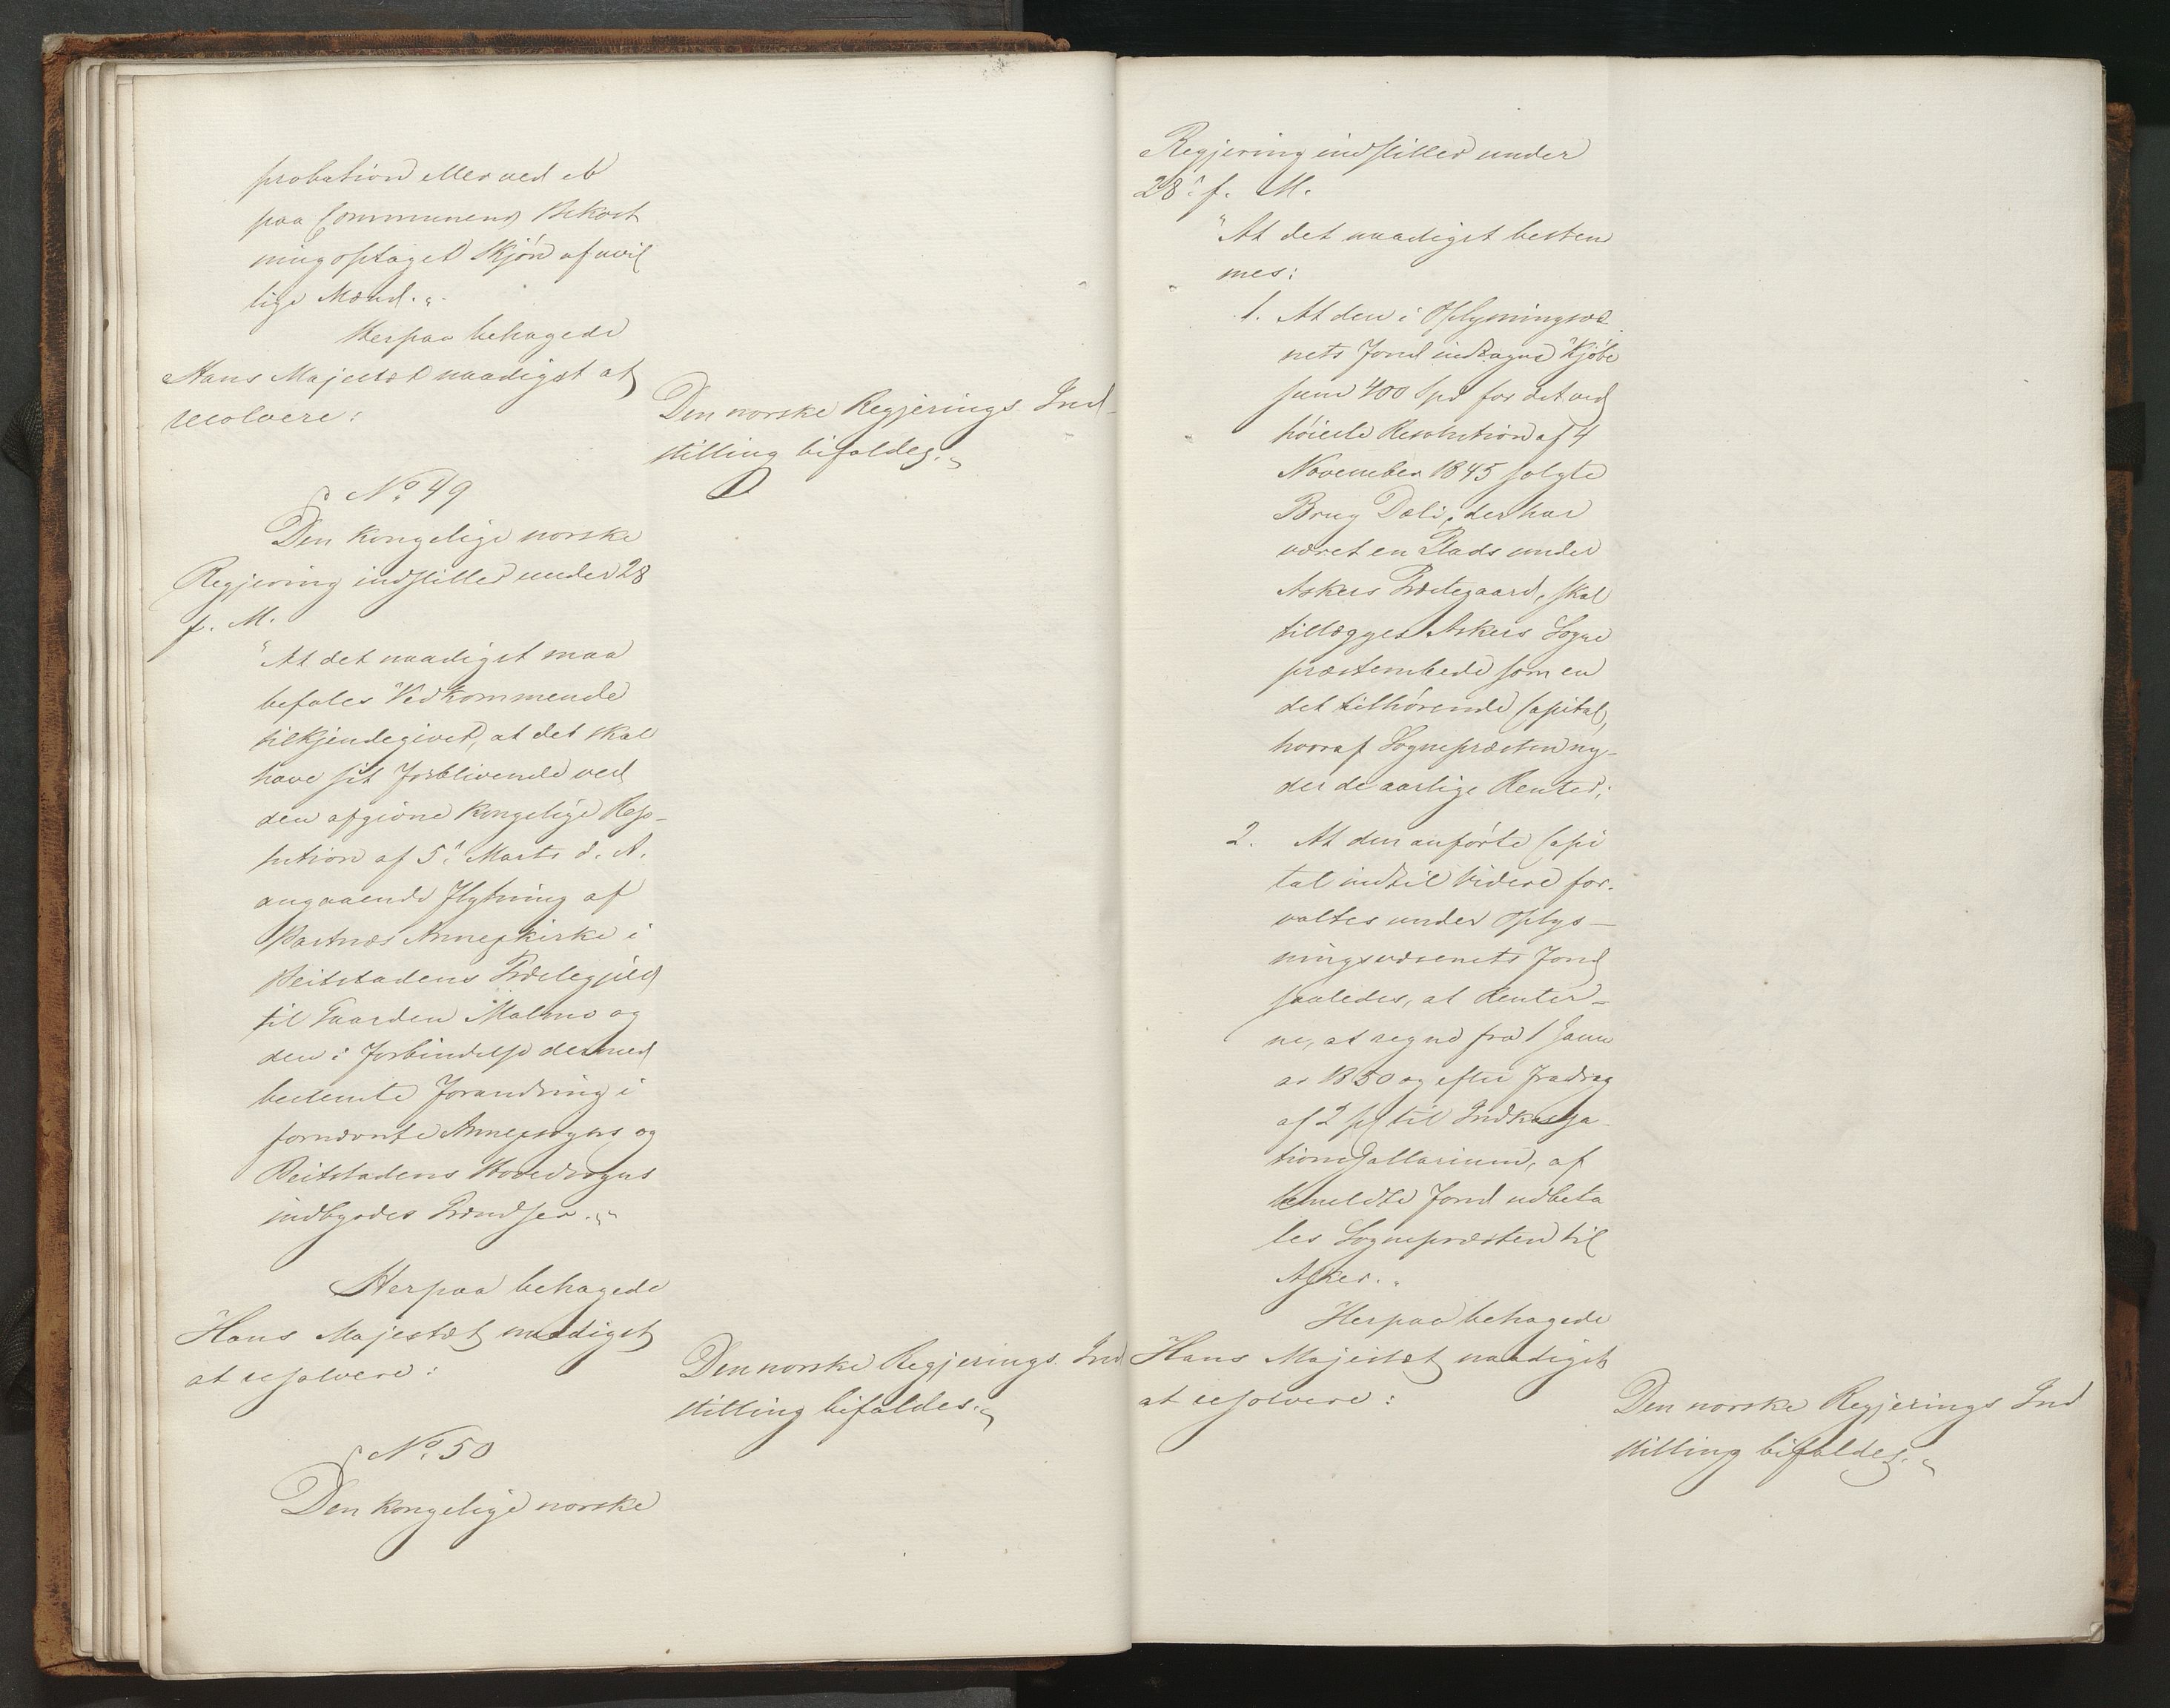 probation eller ved et
paa Communens Bekost
ning optaget Skjøn af uvil
lige Mænd.„
Herpaa behagede
Hans Majestæt naadigst at
resolvere:
Den norske Regjerings Ind-
stilling bifaldes.„
No. 49
Den kongelige norske
Regjering indstiller under 28
f. M.
"At det naadigst maa
befales Vedkommende
tilkjendegivet, at det skal
have sit Forblivende ved
den afgivne kongelige Reso-
lution af 5te Marts d. A.
angaaende Flytning af
Bartnæs Annexkirke i
Beitstadens Præstegjeld
til Gaarden Malmo og
den i Forbindelse dermed
bestemte Forandring i
fornævnte Annexsogns og
Beitstadens Hovedsogns
indbyrdes Grændser.„
Herpaa behagede
Hans Majestæt naadigst
at resolvere:
Den norske Regjerings Ind
stilling bifaldes.„
No. 50
Den kongelige norske
Regjering indstiller under
28de f. M.
"At det naadigst bestem
mes:
1. At den i Oplysningsvæ
nets Fond indtagne Kjøbe
sum 400 Spd for det ved
høieste Resolution af 4
November 1845 solgte
Brug Dæli, der har
været en Plads under
Askers Præstegaard, skal
tillægges Askers Sogne
præstembede som en
det tilhørende Capital,
hvoraf Sognepræsten ny-
der de aarlige Renter;
2. At den anførte Capi
tal indtil Videre for-
valtes under Oplys-
ningsvæsenets Fond
saaledes, at Renter-
ne, at regne fra 1 Janu
ar 1850 og efter Fradrag
af 2 pCt til Indkassa-
tionssallarium, af
bemeldte Fond udbeta
les Sognepræsten til
Asker.„
Herpaa behagede
Hans Majestæt naadigst
at resolvere:
Den norske Regjerings Ind
stilling bifaldes.„